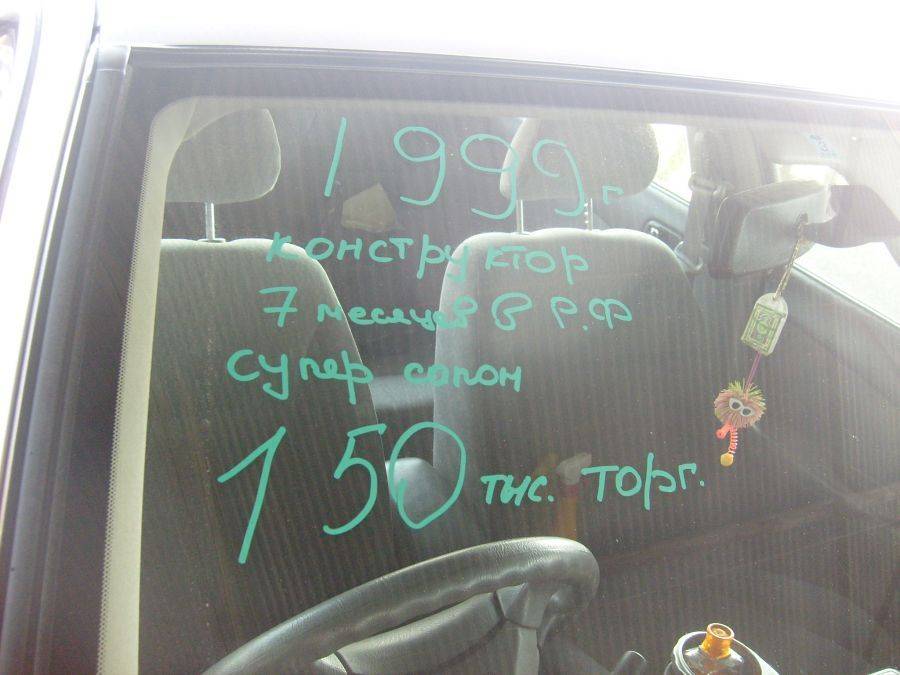 1999 г
конструктор
7 месяцев в Р.Ф
супер салон
150 тыс. торг.